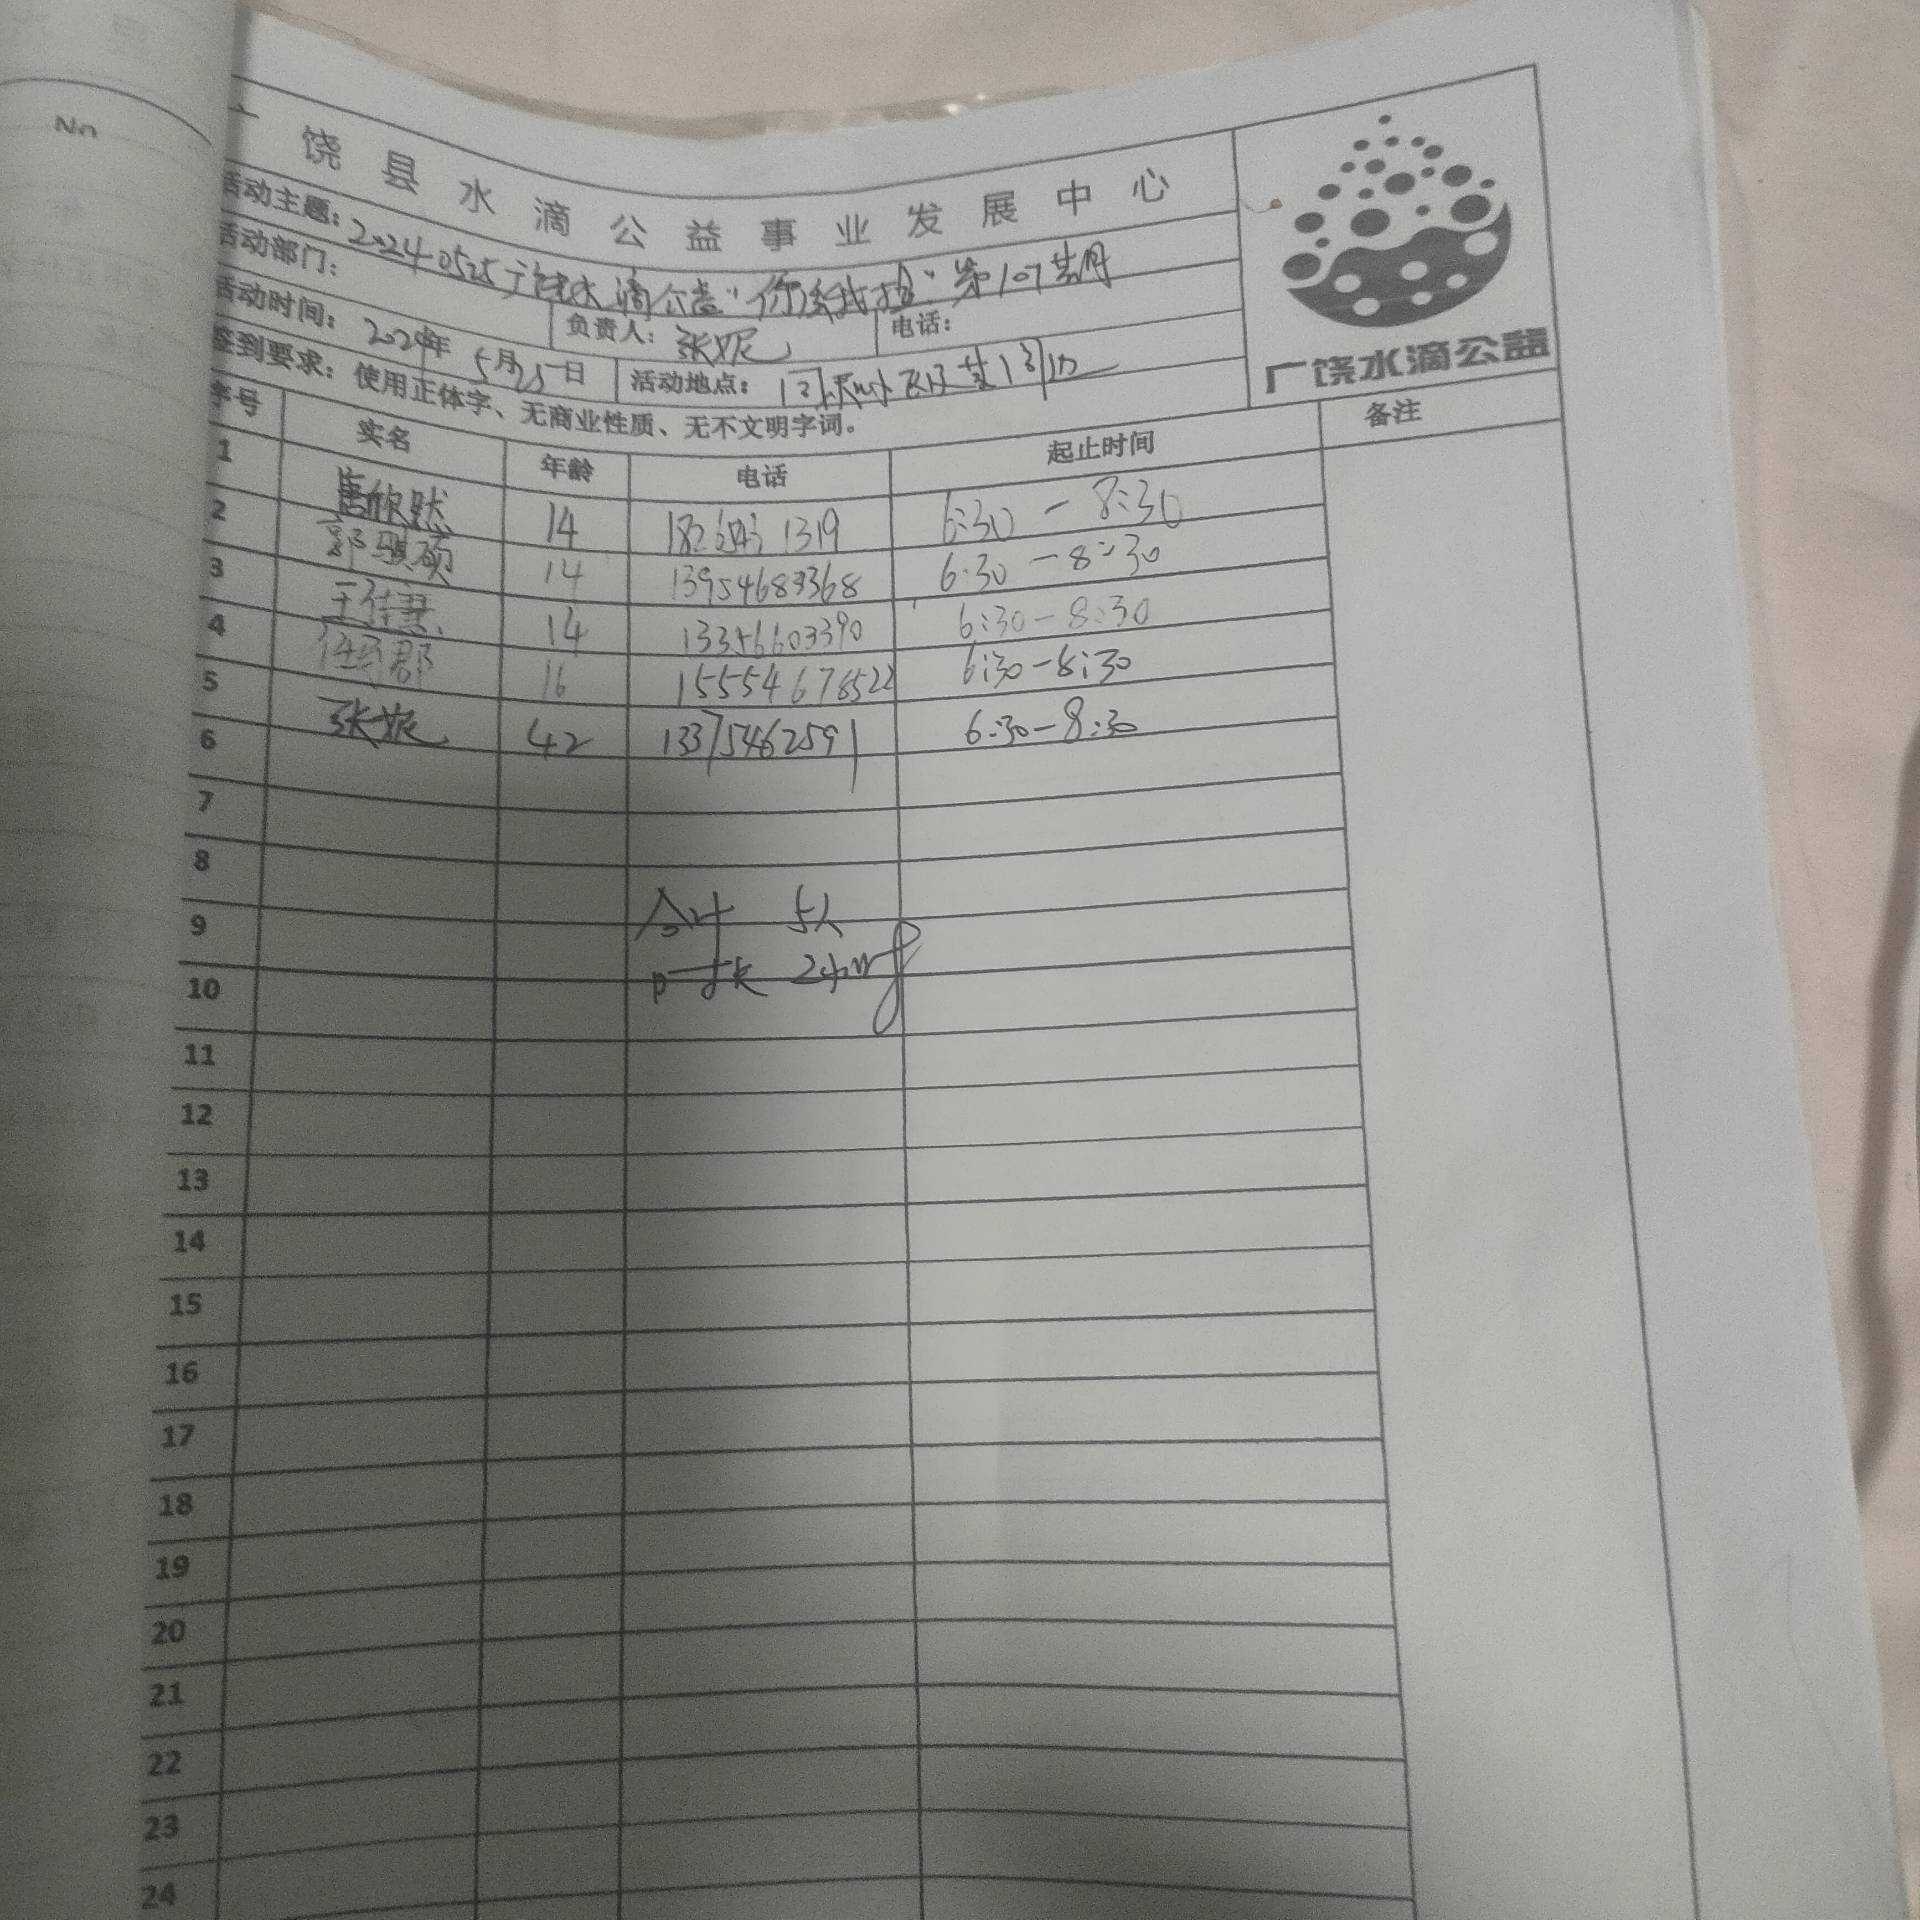 No
饶县水滴公益事业发展中心
活动主题：2024 0525 广饶水滴公益"你丢我捡"第107期
活动部门： 负责人：张妮 电话：
活动时间：2024年 5月25日 活动地点：
签到要求：使用正体字、无商业性质、无不文明字词。
广饶水滴公益
序号 实名 年龄 电话 起止时间 备注
1 14 1319 6:30 — 8:30
2 郭骐硕 14 13954683368 6:30 — 8:30
3 王佳慧 14 13356603390 6:30 — 8:30
4 任 郡 16 15554678522 6:30 — 8:30
5 张妮 42 13375462591 6:30 — 8:30
6
7
8
9 合计 5人
10 时长 2小时
11
12
13
14
15
16
17
18
19
20
21
22
23
24